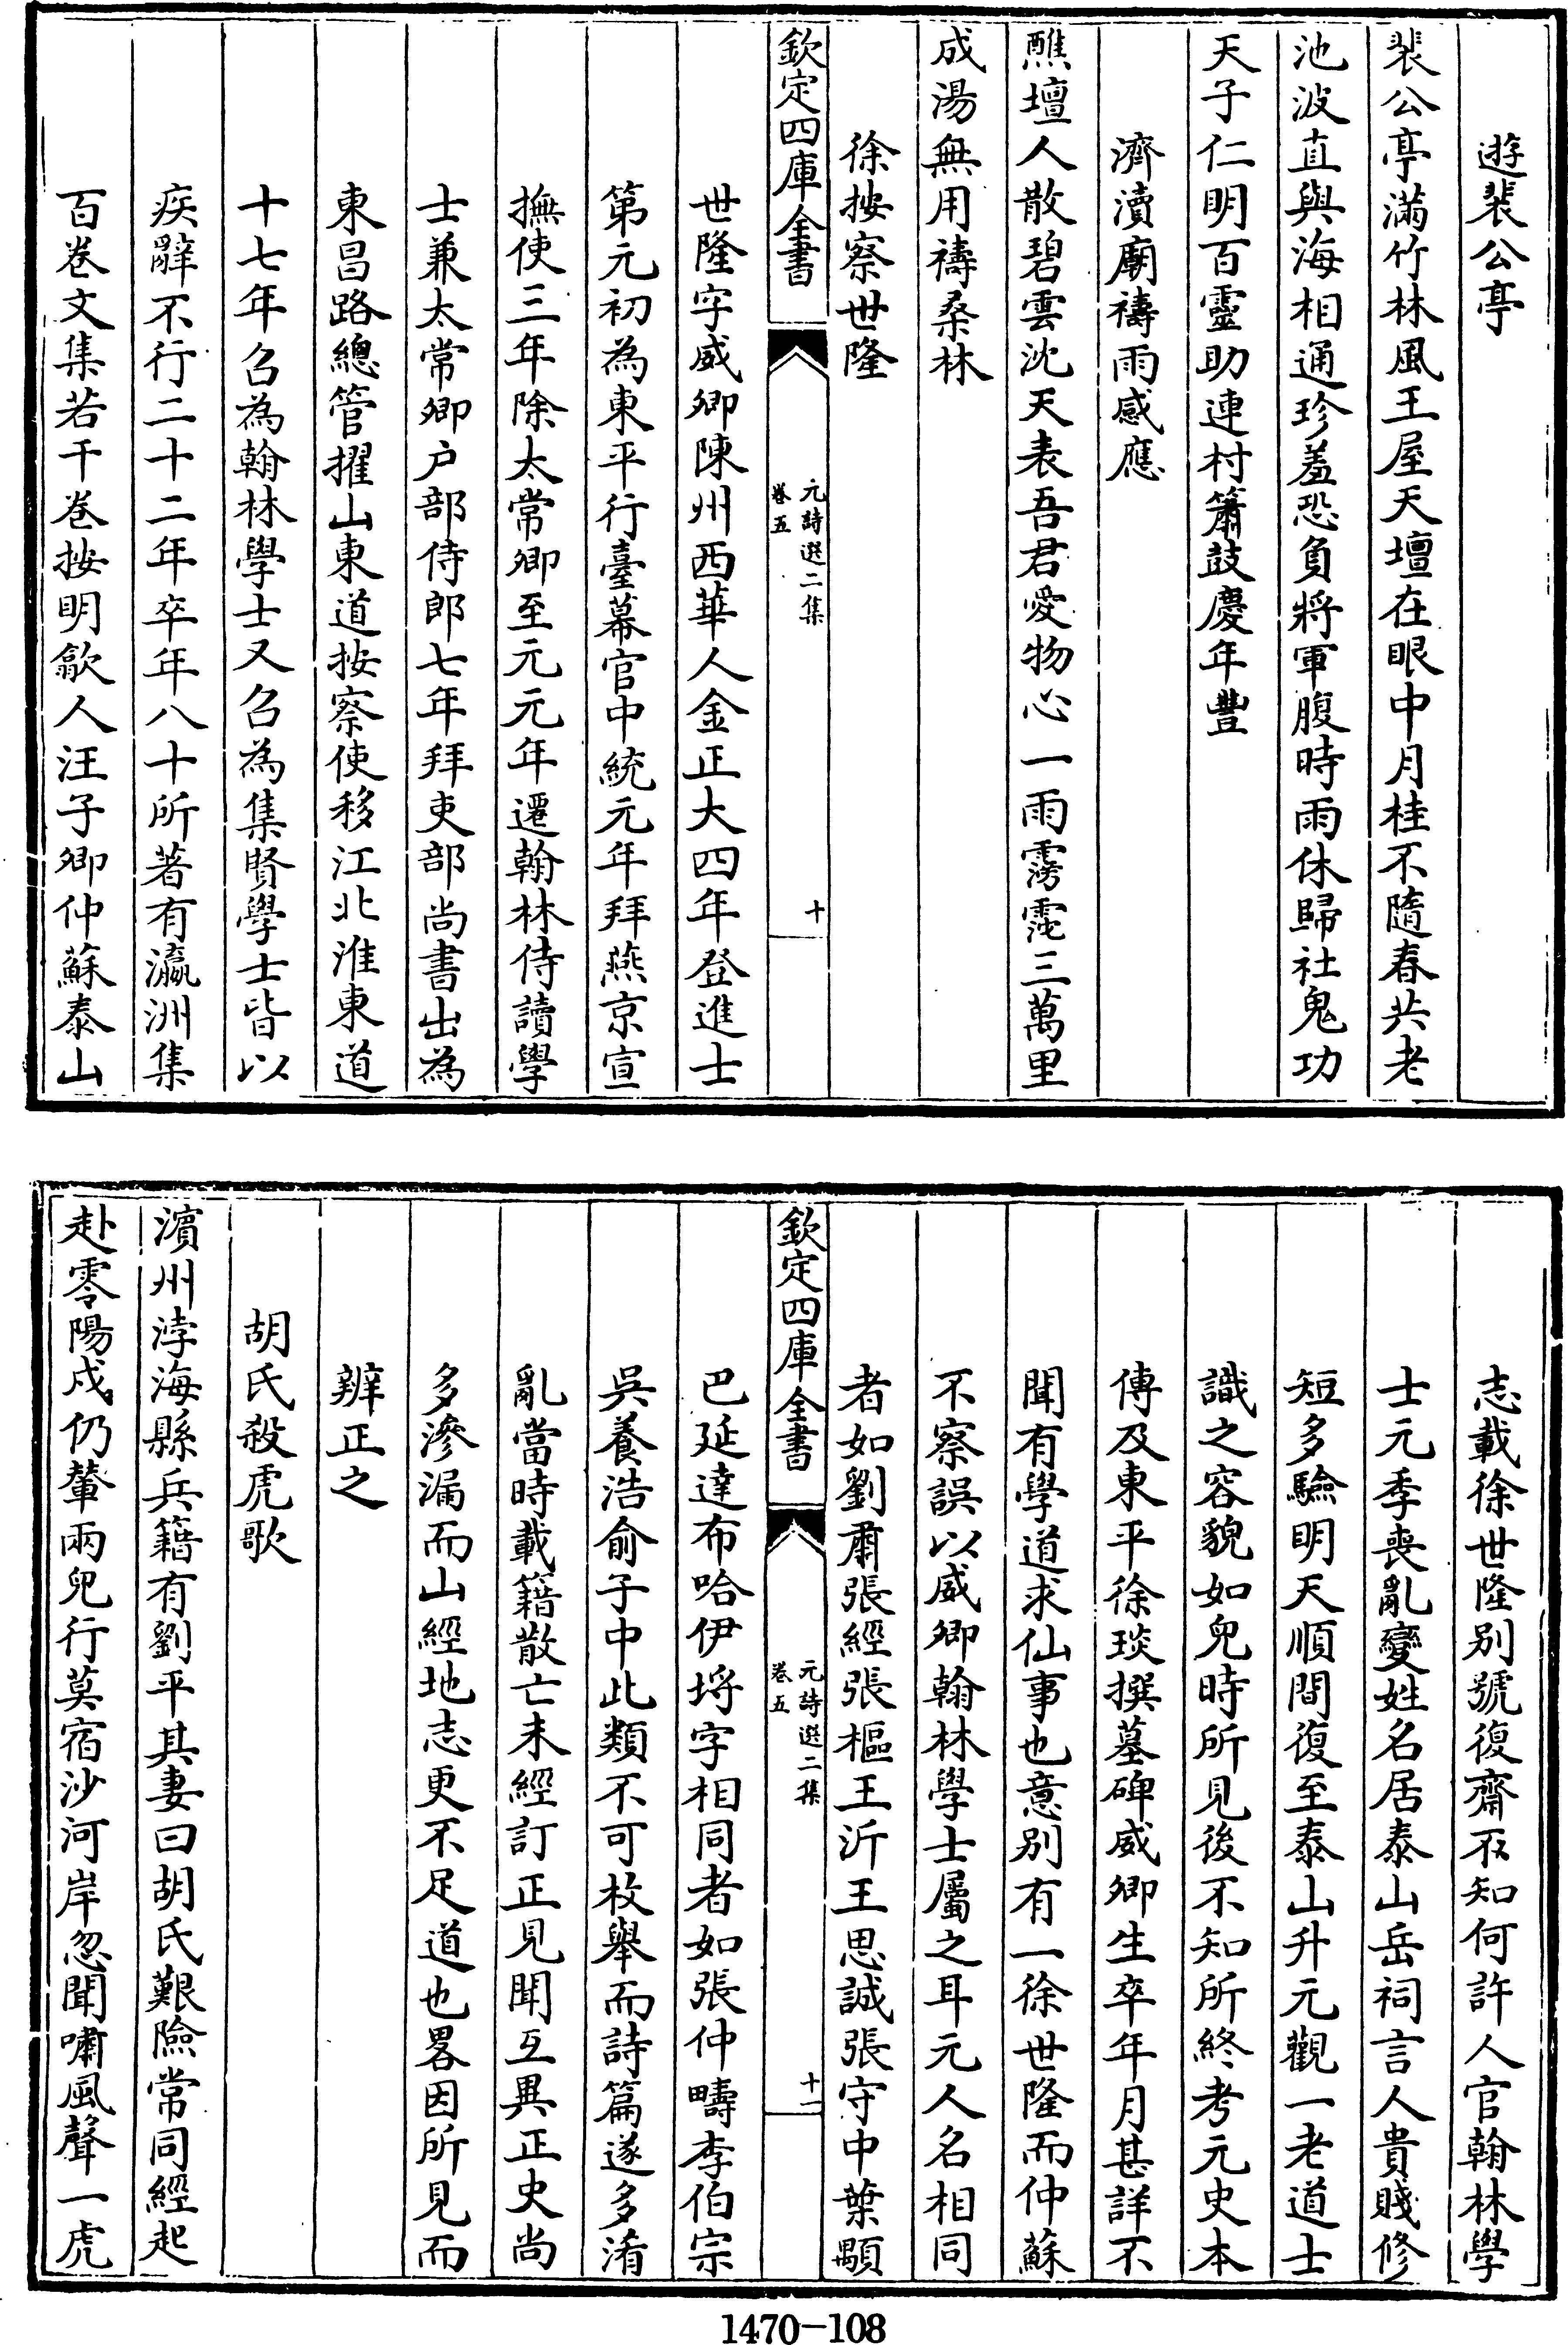 遊裴公亭
裴公亭滿竹林風王屋天壇在眼中月桂不隨春共老
池波直與海相通珍羞恐負將軍腹時雨休歸社鬼功
天子仁明百靈助連村簫鼓慶年豐
濟瀆廟禱雨感應
醮壇人散碧雲沈天表吾君愛物心一雨霶霑三萬里
成湯無用禱桑林
徐按察世隆
欽定四庫全書
元詩選二集
卷五
十
世隆字威卿陳州西華人金正大四年登進士
第元初為東平行臺幕官中統元年拜燕京宣
撫使三年除太常卿至元元年遷翰林侍讀學
士兼太常卿户部侍郎七年拜吏部尚書出為
東昌路總管擢山東道按察使移江北淮東道
十七年召為翰林學士又召為集賢學士皆以
疾辭不行二十二年卒年八十所著有瀛洲集
百卷文集若干卷按明歙人汪子卿仲蘇泰山
志載徐世隆别號復齋不知何許人官翰林學
士元季喪亂變姓名居泰山岳祠言人貴賤修
短多驗明天順間復至泰山升元觀一老道士
識之容貌如兒時所見後不知所終考元史本
傳及東平徐琰撰墓碑威卿生卒年月甚詳不
聞有學道求仙事也意别有一徐世隆而仲蘇
不察誤以威卿翰林學士屬之耳元人名相同
者如劉肅張經張樞王沂王思誠張守中葉顒
欽定四庫全書
元詩選二集
卷五
十一
巴延達布哈伊埒字相同者如張仲疇李伯宗
吳養浩俞子中此類不可枚舉而詩篇遂多淆
亂當時載籍散亡未經訂正見聞互異正史尚
多滲漏而山經地志更不足道也畧因所見而
辨正之
胡氏殺虎歌
濱州渟海縣兵籍有劉平其妻曰胡氏艱險常同經起
赴零陽戍仍輦兩兒行莫宿沙河岸忽聞嘯風聲一虎
1470-108